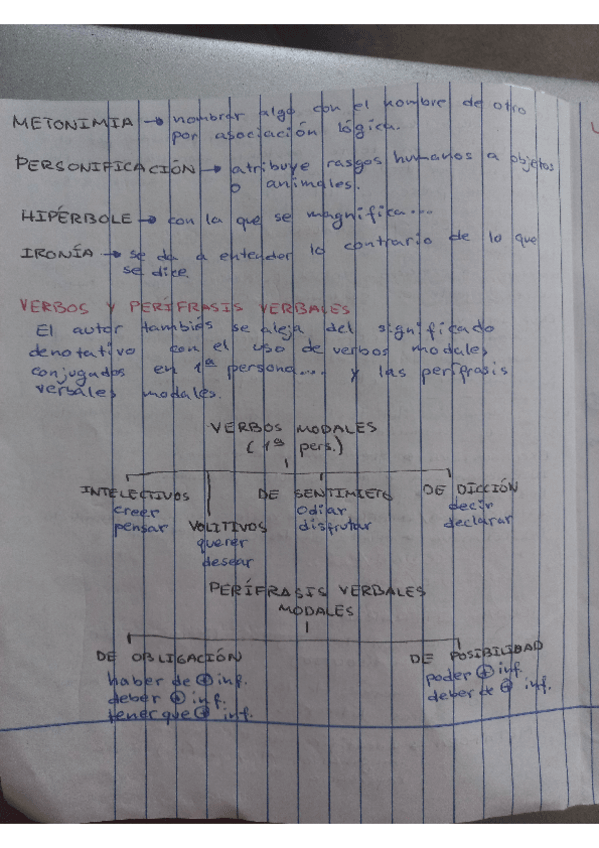 METONIMIA → nombrar algo con el nombre de otro
por asociación lógica.
PERSONIFICACIÓN → atribuye rasgos humanos a objetos
o animales.
HIPÉRBOLE → con la que se magnifica...
IRONÍA → se da a entender lo contrario de lo que
se dice.
VERBOS Y PERÍFRASIS VERBALES
El autor también se aleja del significado
denotativo con el uso de verbos modales
conjugados en 1ª persona.... y las perífrasis
verbales modales.
VERBOS MODALES
(1ª pers.)
INTELECTIVOS
creer
pensar
VOLITIVOS
querer
desear
DE SENTIMIETO
odiar
disfrutar
DE DICCIÓN
decir
declarar
PERÍFRASIS VERBALES
MODALES
DE OBLIGACIÓN
haber de ⊕ inf.
deber ⊕ inf.
tener que ⊕ inf.
DE POSIBILIDAD
poder ⊕ inf.
deber de ⊕ inf.